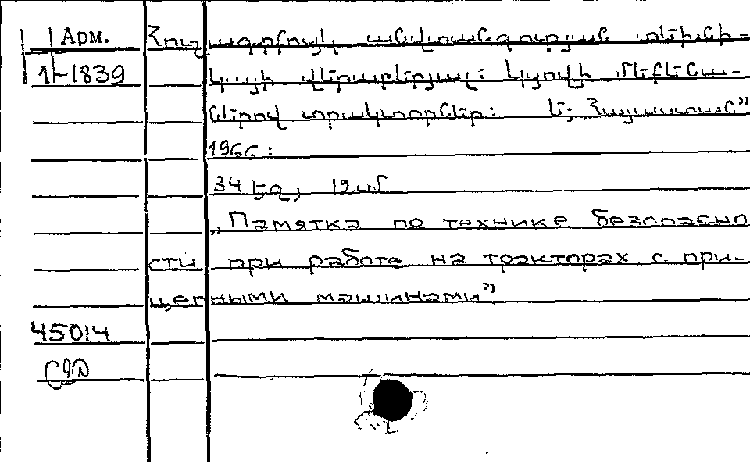 Арм.
Հուշագրույկ անվտանգության տեխնի-
1Г-1839
կայի վերաբերյալ: կցովի մեքենա-
ներով տրակտորներ: Ե; Հայաստան"
1966:
34 էջ, 19սմ
„Памятка по технике безопасно
сти при работе на тракторах с при-
цепными машинами"
45014